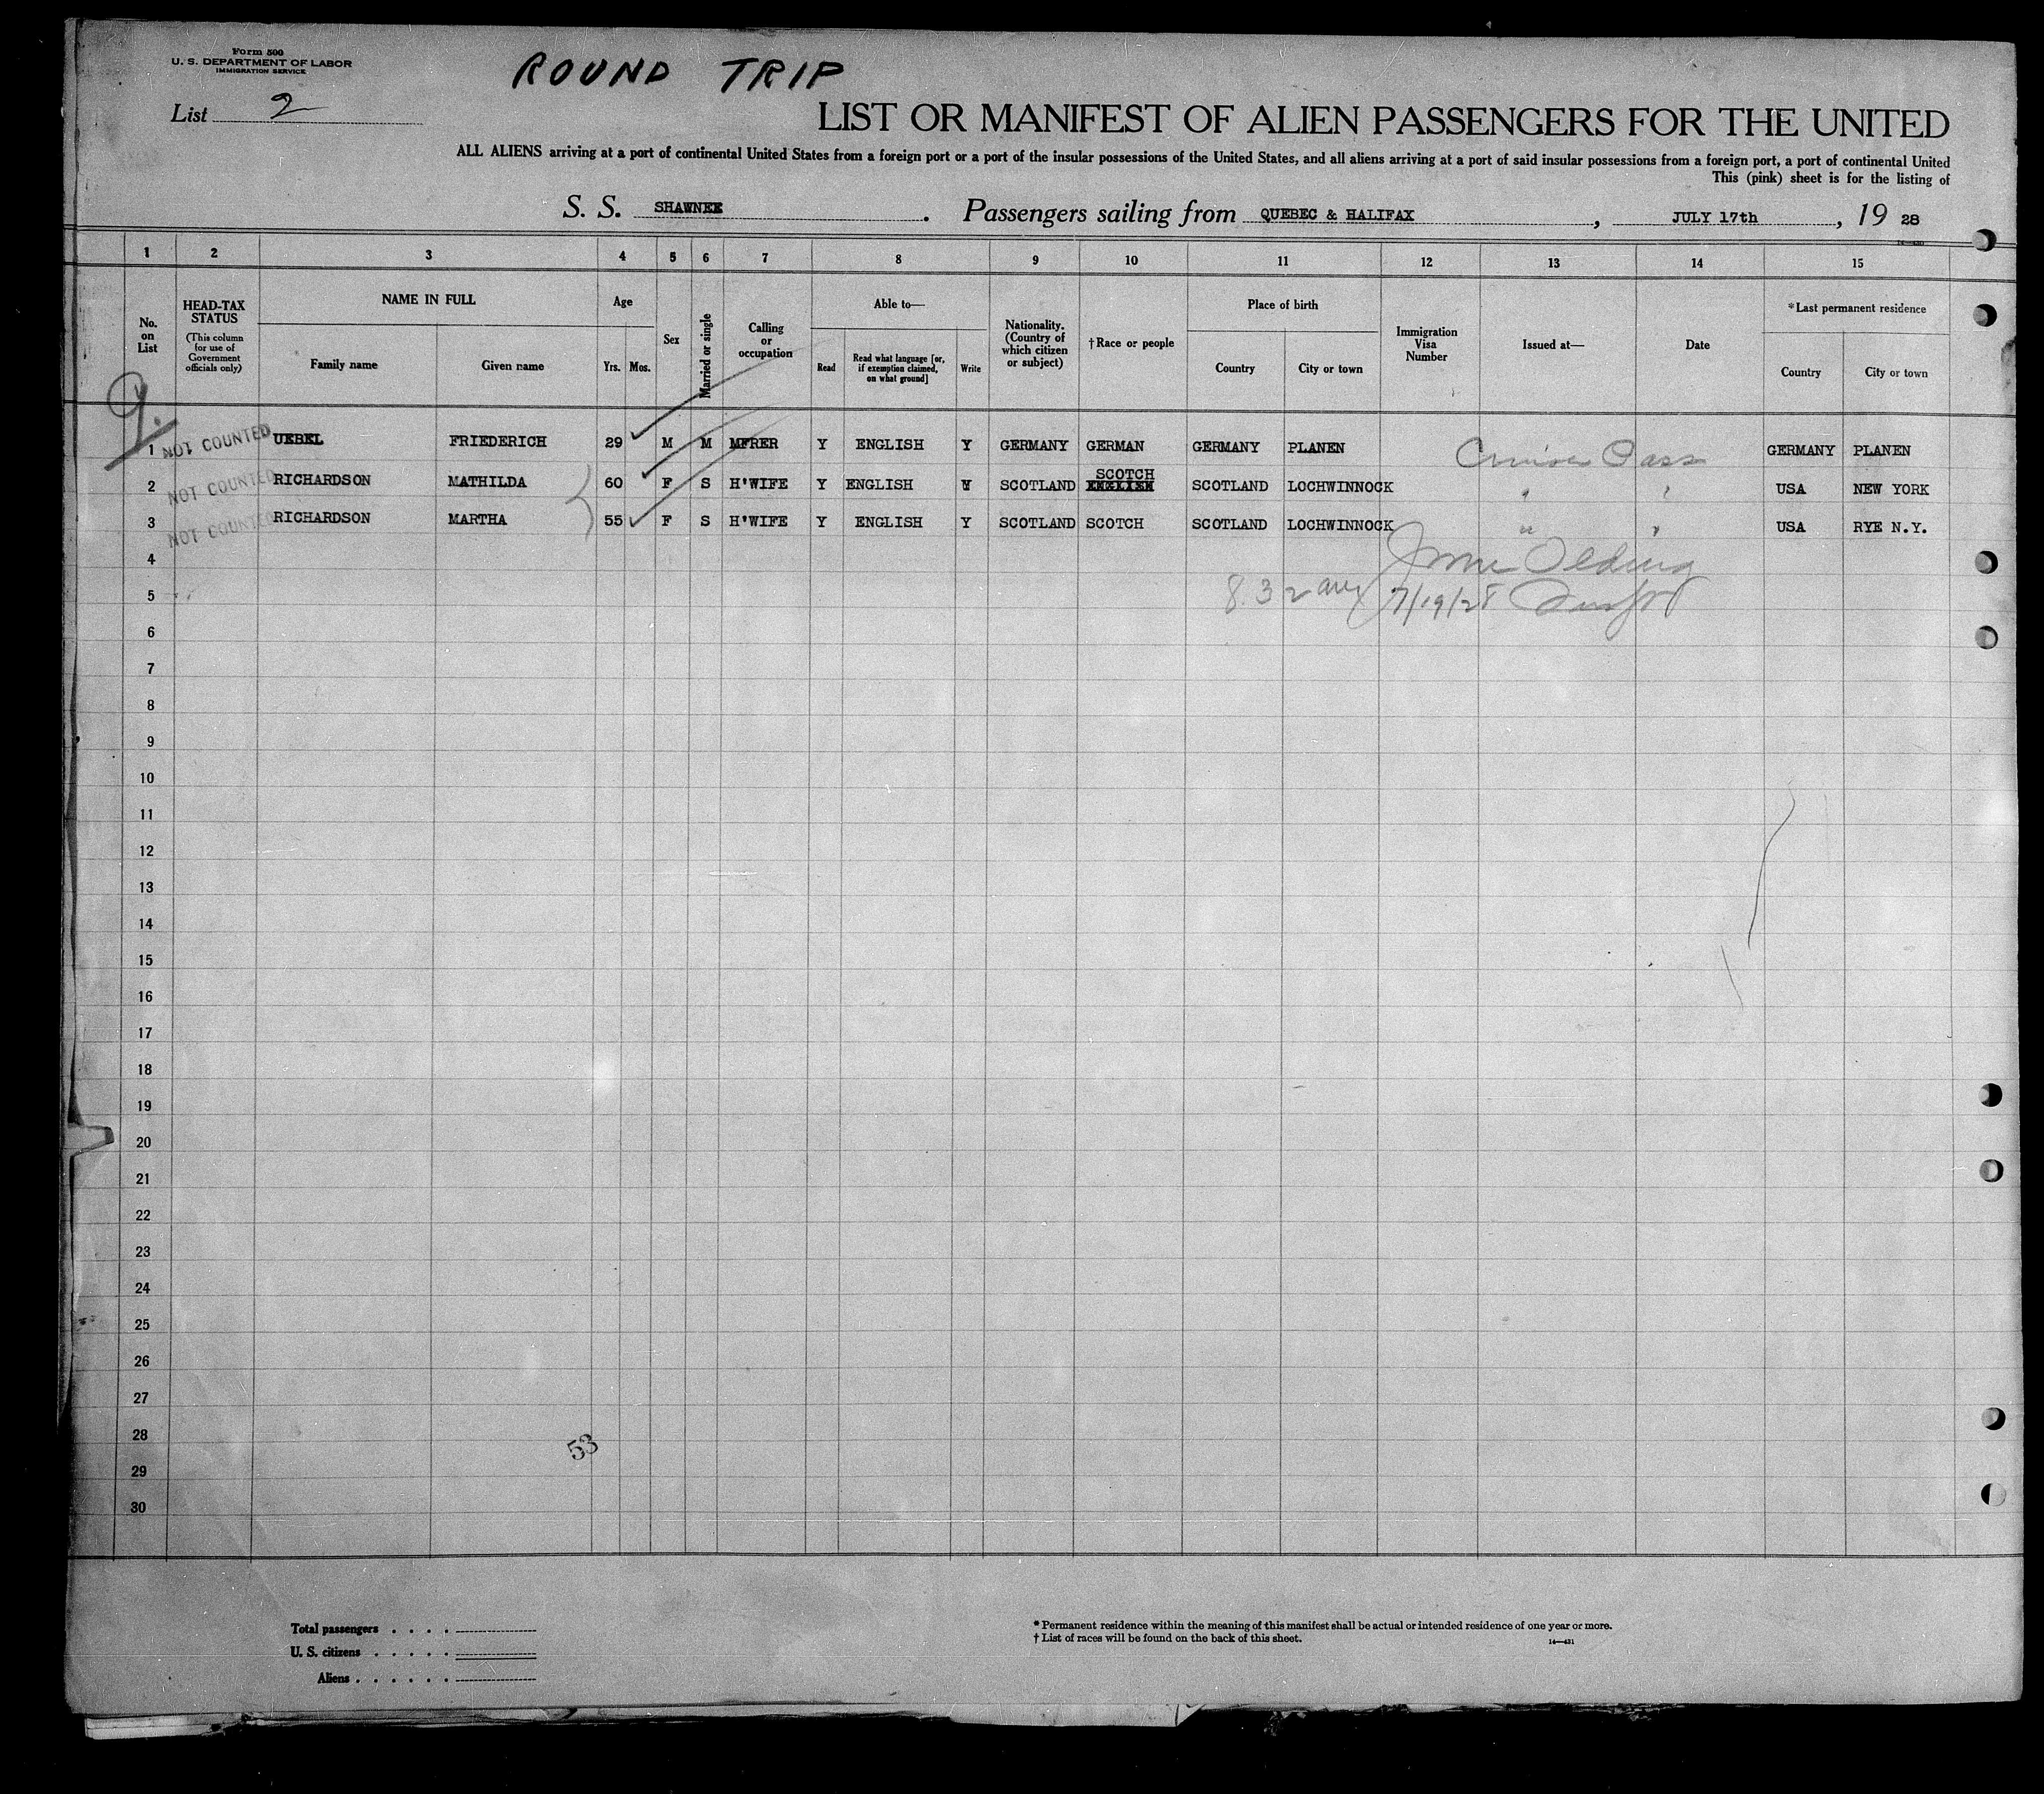 Form 500
U. S. DEPARTMENT OF LABOR
IMMIGRATION SERVICE
ROUND TRIP
List 2
LIST OR MANIFEST OF ALIEN PASSENGERS FOR THE UNITED
ALL ALIENS arriving at a port of continental United States from a foreign port or a port of the insular possessions of the United States, and all aliens arriving at a port of said insular possessions from a foreign port, a port of continental United
This (pink) sheet is for the listing of
S. S. SHAWNEE . Passengers sailing from QUEBEC & HALIFAX , JULY 17th , 19 28
1 2 3 4 5 6 7 8 9 10 11 12 13 14 15
No. on List
HEAD-TAX STATUS
(This column for use of Government officials only)
NAME IN FULL
Family name Given name
Age
Yrs. Mos.
Sex
Married or single
Calling or occupation
Able to—
Read
Read what language [or, if exemption claimed, on what ground]
Write
Nationality. (Country of which citizen or subject)
†Race or people
Place of birth
Country City or town
Immigration Visa Number
Issued at—
Date
*Last permanent residence
Country City or town
1 NOT COUNTED UEBEL FRIEDERICH 29 M M MFRER Y ENGLISH Y GERMANY GERMAN GERMANY PLANEN Cruise Pass GERMANY PLANEN
SCOTCH
2 NOT COUNTED RICHARDSON MATHILDA 60 F S H'WIFE Y ENGLISH Y SCOTLAND ENGLISH SCOTLAND LOCHWINNOCK USA NEW YORK
3 NOT COUNTED RICHARDSON MARTHA 55 F S H'WIFE Y ENGLISH Y SCOTLAND SCOTCH SCOTLAND LOCHWINNOCK " " USA RYE N.Y.
4
5 7/19/28
6
7
8
9
10
11
12
13
14
15
16
17
18
19
20
21
22
23
24
25
26
27
28
53
29
30
Total passengers . . . .
U. S. citizens . . . . .
Aliens . . . . . .
* Permanent residence within the meaning of this manifest shall be actual or intended residence of one year or more.
† List of races will be found on the back of this sheet.
14—431